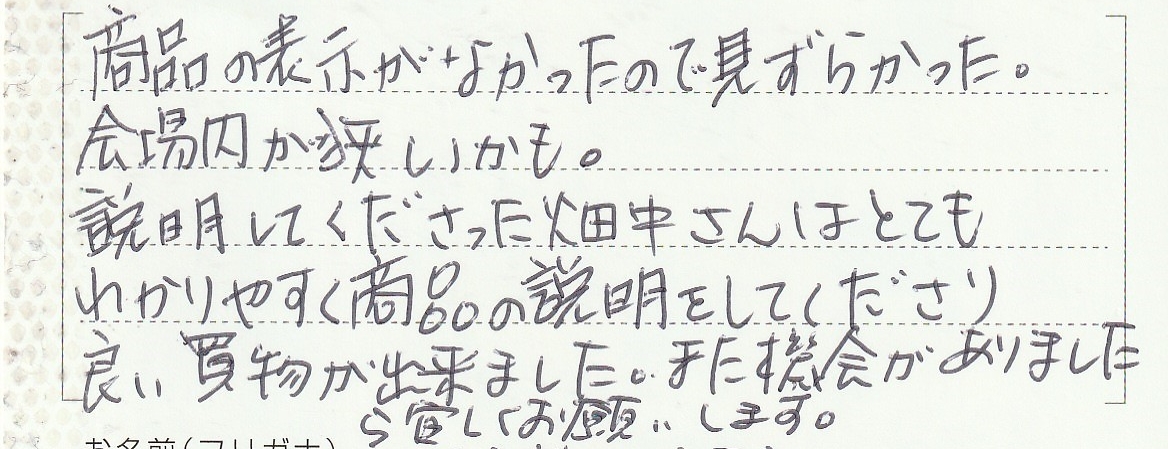 商品の表示がなかったので見ずらかった。
会場内が狭いかも。
説明してくださった畑中さんはとても
わかりやすく商品の説明をしてくださり
良い買物が出来ました。また機会がありました
ら宜しくお願いします。
お名前(フリガナ)